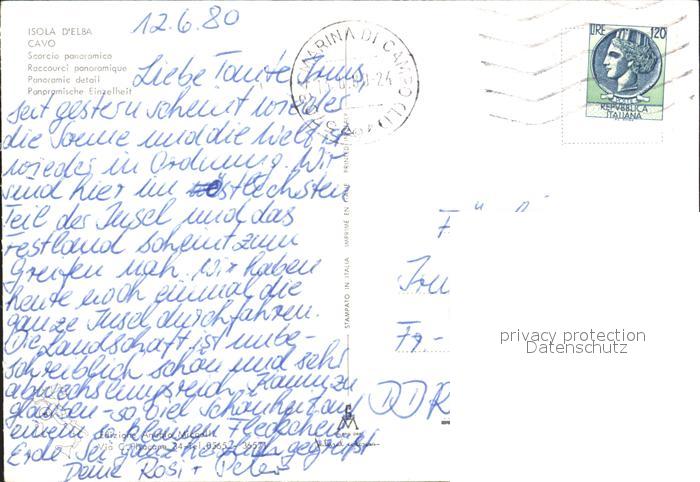 ISOLA D'ELBA
CAVO
Scorcio panoramico
Raccourci panoramique
Panoramic detail
Panoramische Einzelheit
12.6.80
Liebe Tante Irms,
seit gestern scheint wieder
die Sonne und die Welt ist
wieder in Ordnung. Wir
sind hier im östlichsten
Teil der Insel und das
Festland scheint zum
Greifen nah. Wir haben
heute noch einmal die
ganze Insel durchfahren.
Die Landschaft ist unbe-
schreiblich schön und sehr
abwechslungsreich. Kaum zu
glauben - so viel Schönheit auf
einem so kleinen Fleckchen
Erde. Sei ganz herzlich gegrüßt
Deine Rosi + Peter
MARINA DI CAMPO
LIRE 120
REPVBBLICA
ITALIANA
STAMPATO IN ITALIA IMPRIMÉ EN ITALIE
F
Fr-
DDR
privacy protection
Datenschutz